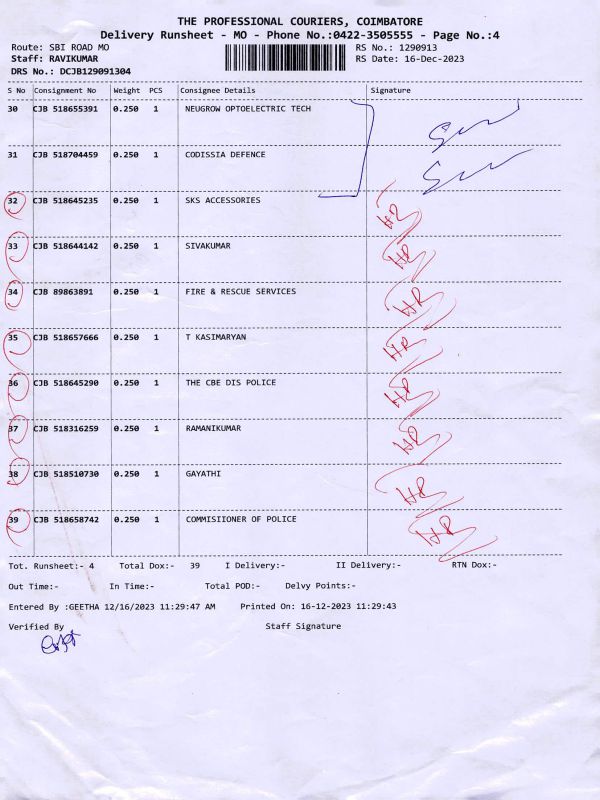 THE PROFESSIONAL COURIERS, COIMBATORE
Delivery Runsheet - MO - Phone No.:0422-3505555 - Page No.:4
Route: SBI ROAD MO RS No.: 1290913
Staff: RAVIKUMAR RS Date: 16-Dec-2023
DRS No.: DCJB129091304
S No Consignment No Weight PCS Consignee Details Signature
30 CJB 518655391 0.250 1 NEUGROW OPTOELECTRIC TECH
31 CJB 518704459 0.250 1 CODISSIA DEFENCE
32 CJB 518645235 0.250 1 SKS ACCESSORIES HR
33 CJB 518644142 0.250 1 SIVAKUMAR HR
34 CJB 89863891 0.250 1 FIRE & RESCUE SERVICES HR
35 CJB 518657666 0.250 1 T KASIMARYAN HR
36 CJB 518645290 0.250 1 THE CBE DIS POLICE HR
37 CJB 518316259 0.250 1 RAMANIKUMAR HR
38 CJB 518510730 0.250 1 GAYATHI HR
39 CJB 518658742 0.250 1 COMMISIIONER OF POLICE HR
Tot. Runsheet:- 4 Total Dox:- 39 I Delivery:- II Delivery:- RTN Dox:-
Out Time:- In Time:- Total POD:- Delvy Points:-
Entered By :GEETHA 12/16/2023 11:29:47 AM Printed On: 16-12-2023 11:29:43
Verified By Staff Signature